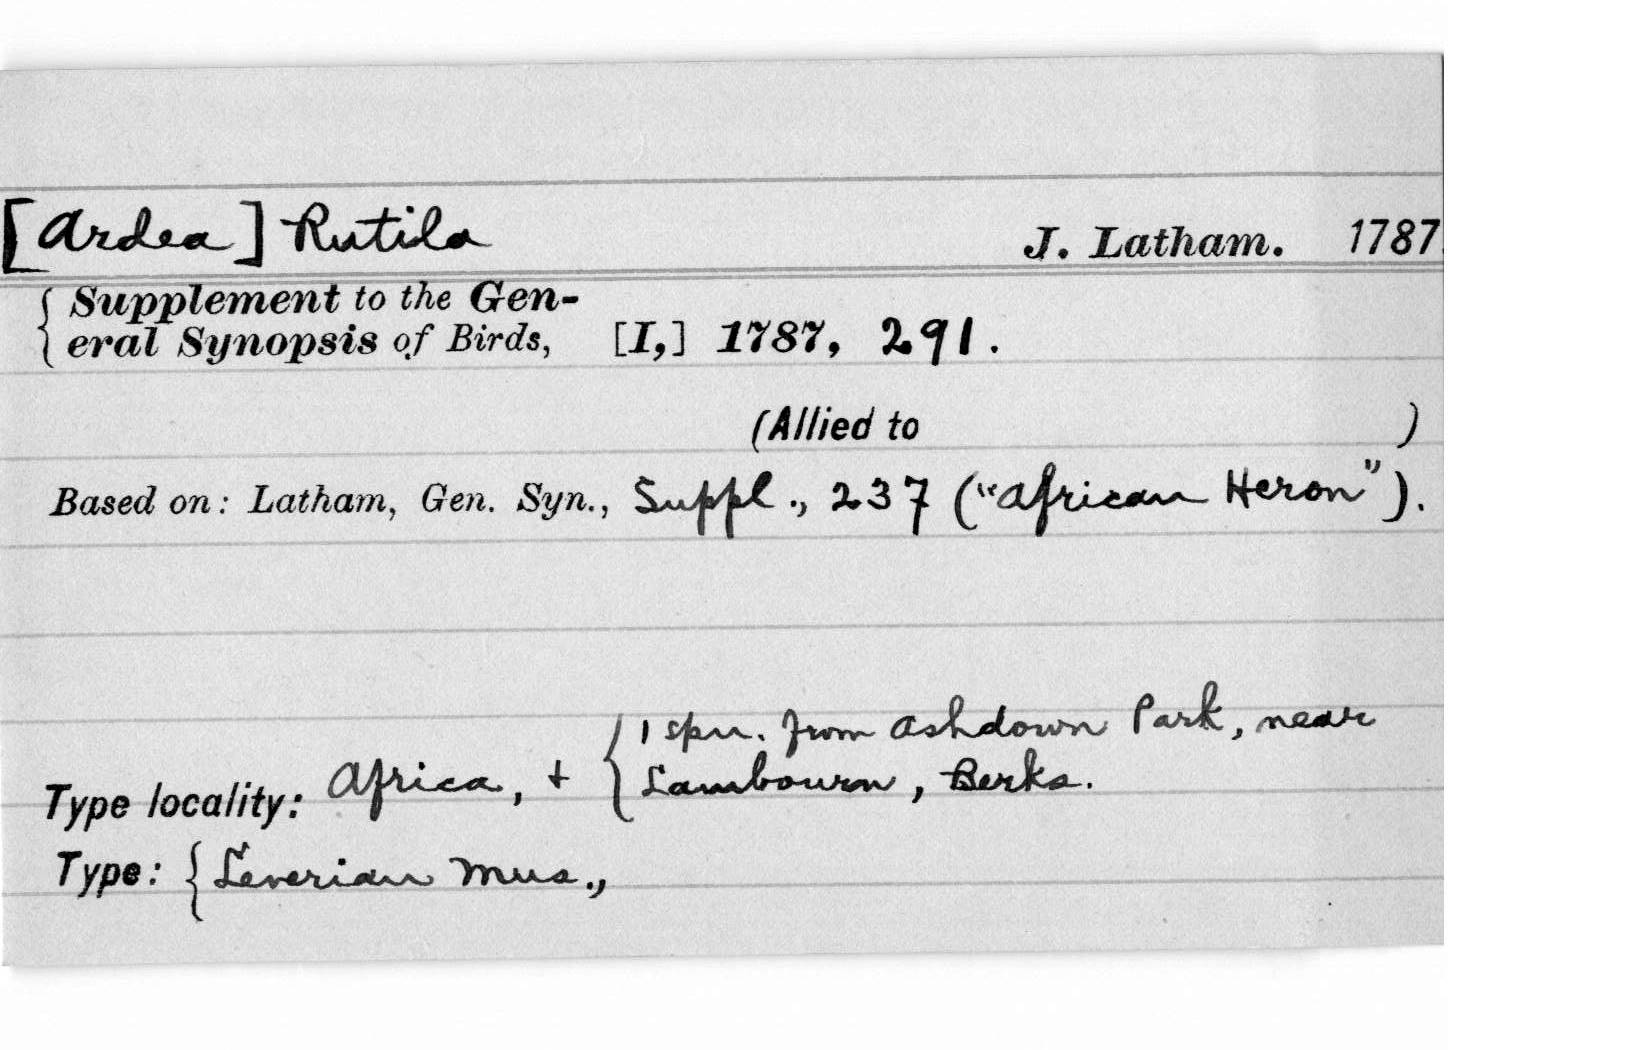 [Ardea] Rutila J. Latham. 1787.
Supplement to the Gen-
eral Synopsis of Birds, [I,] 1787, 291.
(Allied to )
Based on: Latham, Gen. Syn., Suppl., 237 ("African Heron").
1 spn. from Ashdown Park, near
Type locality: Africa, + Lambourn, Berks.
Type: Leverian Mus.,